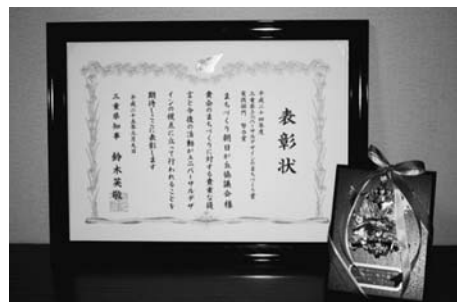 表彰状
平成二十四年度
三重県ユニバーサルデザインのまちづくり賞
実践部門 奨励賞
まちづくり朝日ケ丘協議会様
貴会のまちづくりに対する貴重な提
言と今後の活動がユニバーサルデザ
インの視点に立って行われることを
期待しここに表彰します
平成二十五年三月九日
三重県知事 鈴木英敬